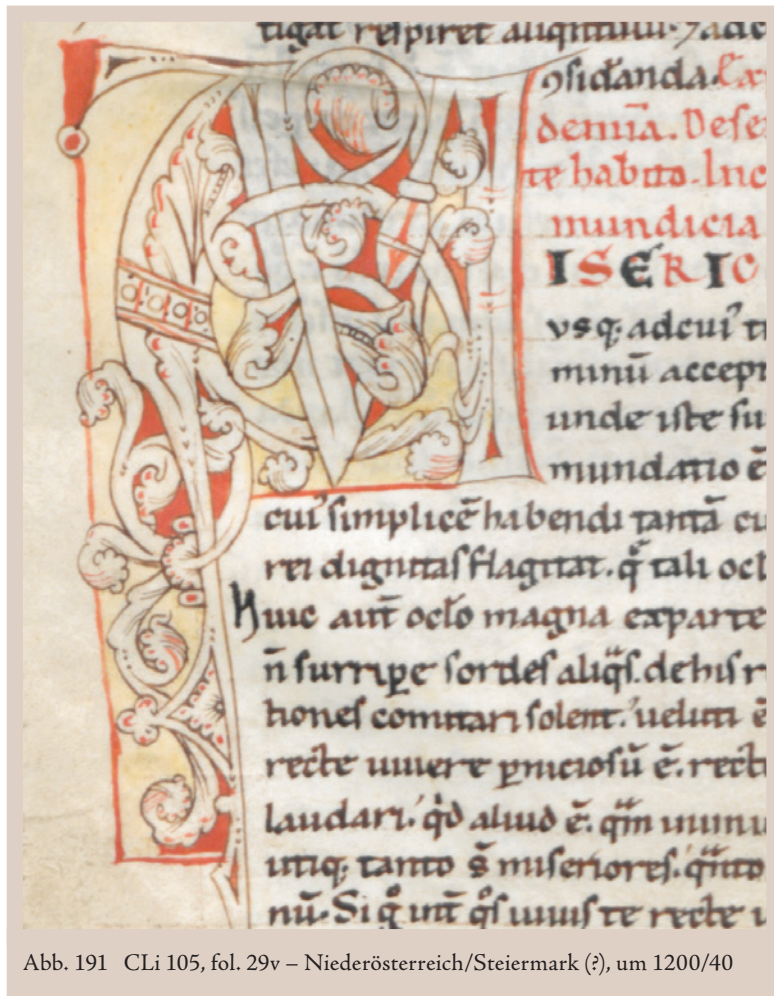 tigat respiret aliqntulū. 7 adic
ꝯsid̄anda. Ex
demīa. Dese
te habito. Inc
mundicia
ISERIC
vsq; ad cui᷒ ti
minū accep
unde iste su
mundatio ē
cui᷒ simplicē habendi tantā cu
rei dignitas flagitat. q̄ tali ocl
Huic aut̄ oclo magna exparte
n̄ surripe sordes aliq̄s. de his r
tiones comitari solent. ueluti ē
recte uiuere pniciosū ē. recte
laudari. qd̄ aliud ē. qm̄ uiuu
utiq; tanto s̄ miseriores. qnto
nū. Si q̊ int̄ q̊s uiuis te recte u
Abb. 191 CLi 105, fol. 29v – Niederösterreich/Steiermark (?), um 1200/40